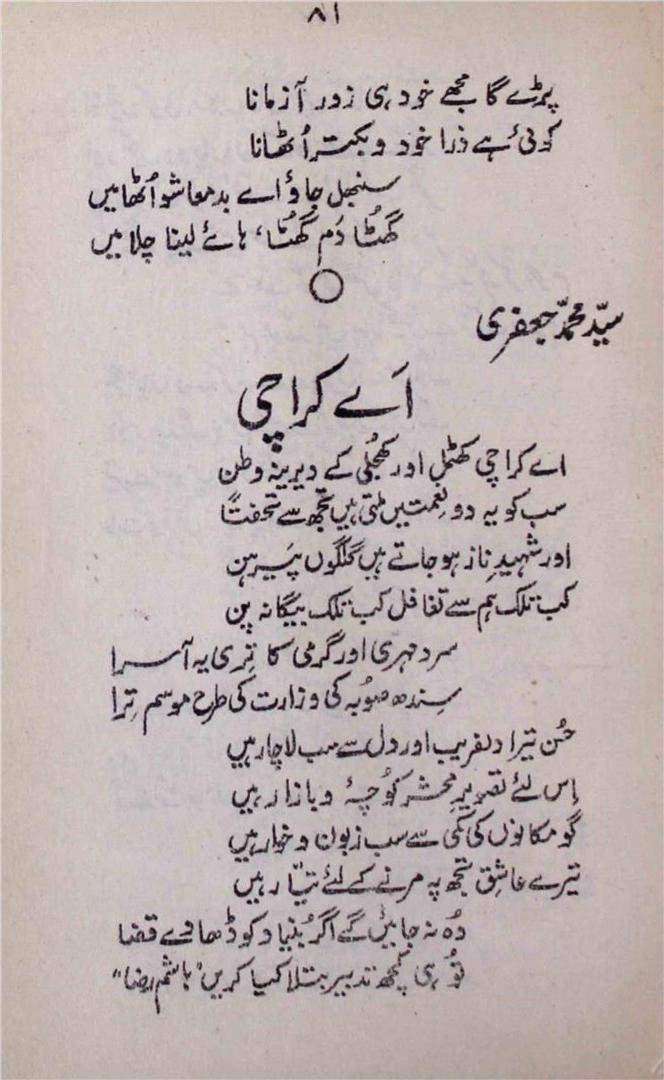 ۸۱
پڑے گا مجھے خود ہی زور آزمانا
کوئی ہے ذرا خود و بکتر اُٹھانا
سنبھل جاؤ اے بدمعاشو اُٹھا میں
گھُٹا دَم گھُٹا، ہائے لینا چلا میں
سیّد محمّد جعفری
اَے کراچی
اے کراچی کھٹمل اور کھجلی کے دیرینہ وطن
سب کو یہ دو نعمتیں ملتی ہیں تجھ سے تحفتاً
اور شہیدِ ناز ہو جاتے ہیں گلگوں پَیرہن
کب تلک ہم سے تغافل کب تلک بیگانہ پن
سرد مہری اور گرمی کا تِری یہ آسرا
سِندھ صُوبہ کی وزارت کی طرح موسم تِرا
حُسن تیرا دلفریب اور دل سے سب لاچار ہیں
اِس لئے تصویرِ محشر کوُچۂ و بازار ہیں
گو مکانوں کی کمی سے سب زبون و خوار ہیں
تیرے عاشِق تجھ پہ مرنے کے لئے تیّار ہیں
وُہ نہ جائیں گے اگر بُنیاد کو ڈھا دے قضا
توُ ہی کچھ تدبیر بتلا کیا کریں "ہاشم رضا"